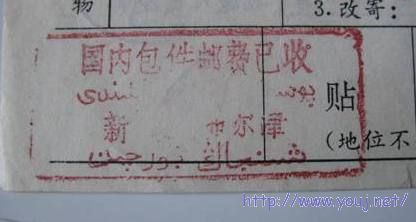 物
3.改寄：
国内包件邮费已收
新 布尔津
شىنجاڭ بۋرجىن
贴
(地位不
http://www.youj.net/